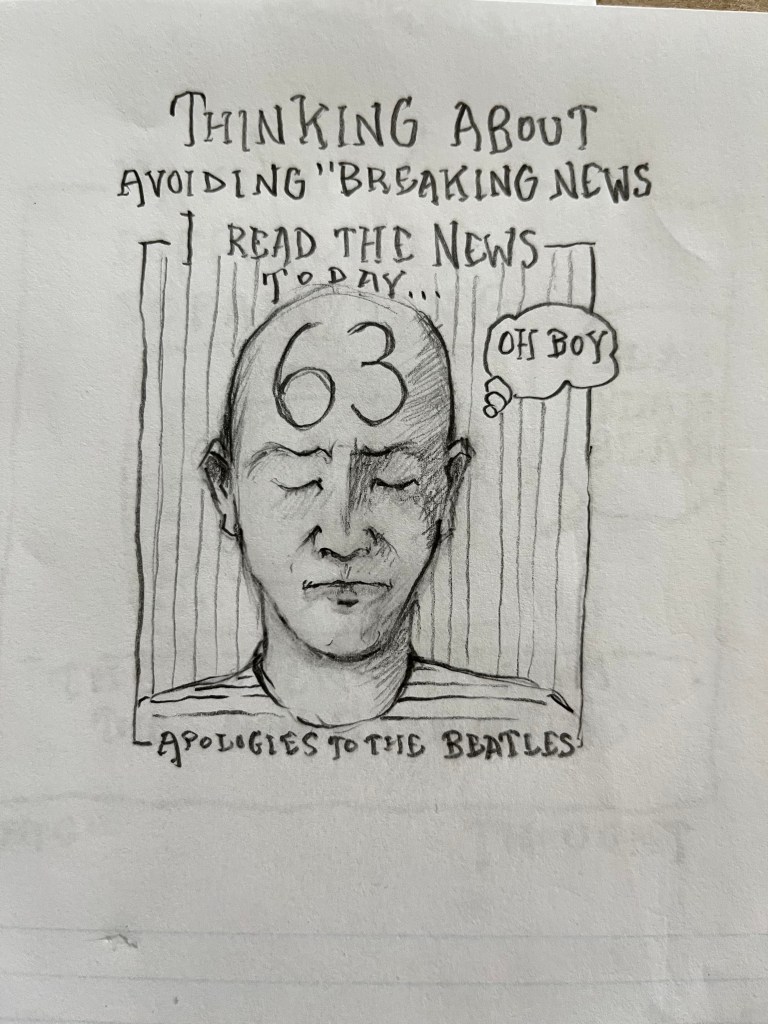 THINKING ABOUT
AVOIDING "BREAKING NEWS
I READ THE NEWS
TODAY...
63
OH BOY
APOLOGIES TO THE BEATLES